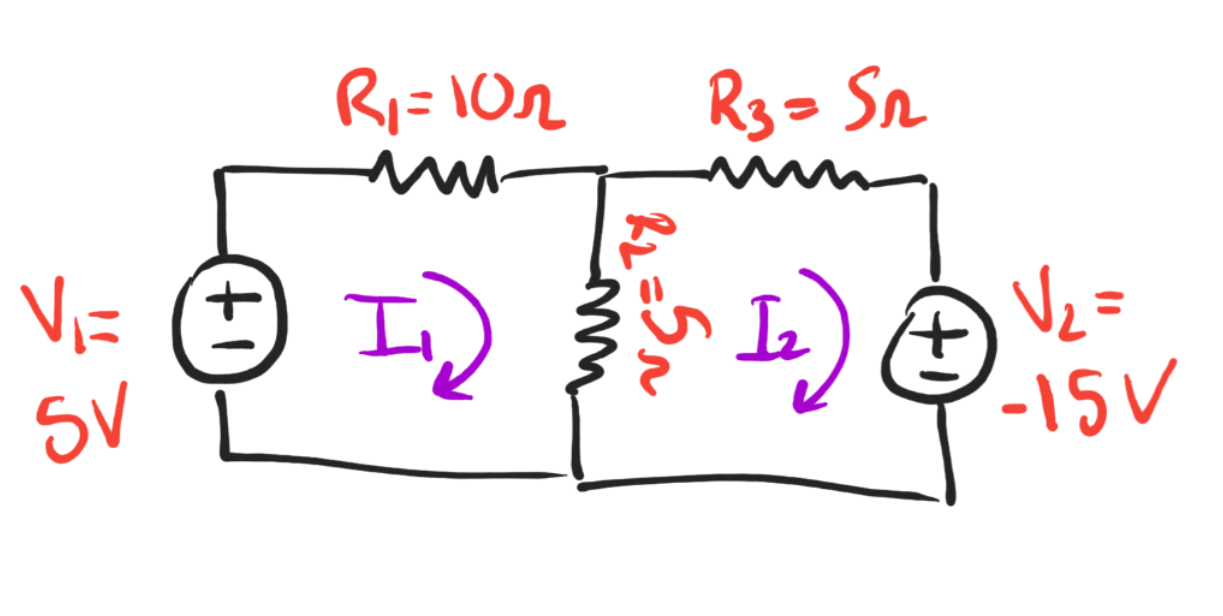 R₁=10Ω
R₃=5Ω
V₁=
5V
+
−
I₁
R₂=5Ω
I₂
+
−
V₂=
-15V